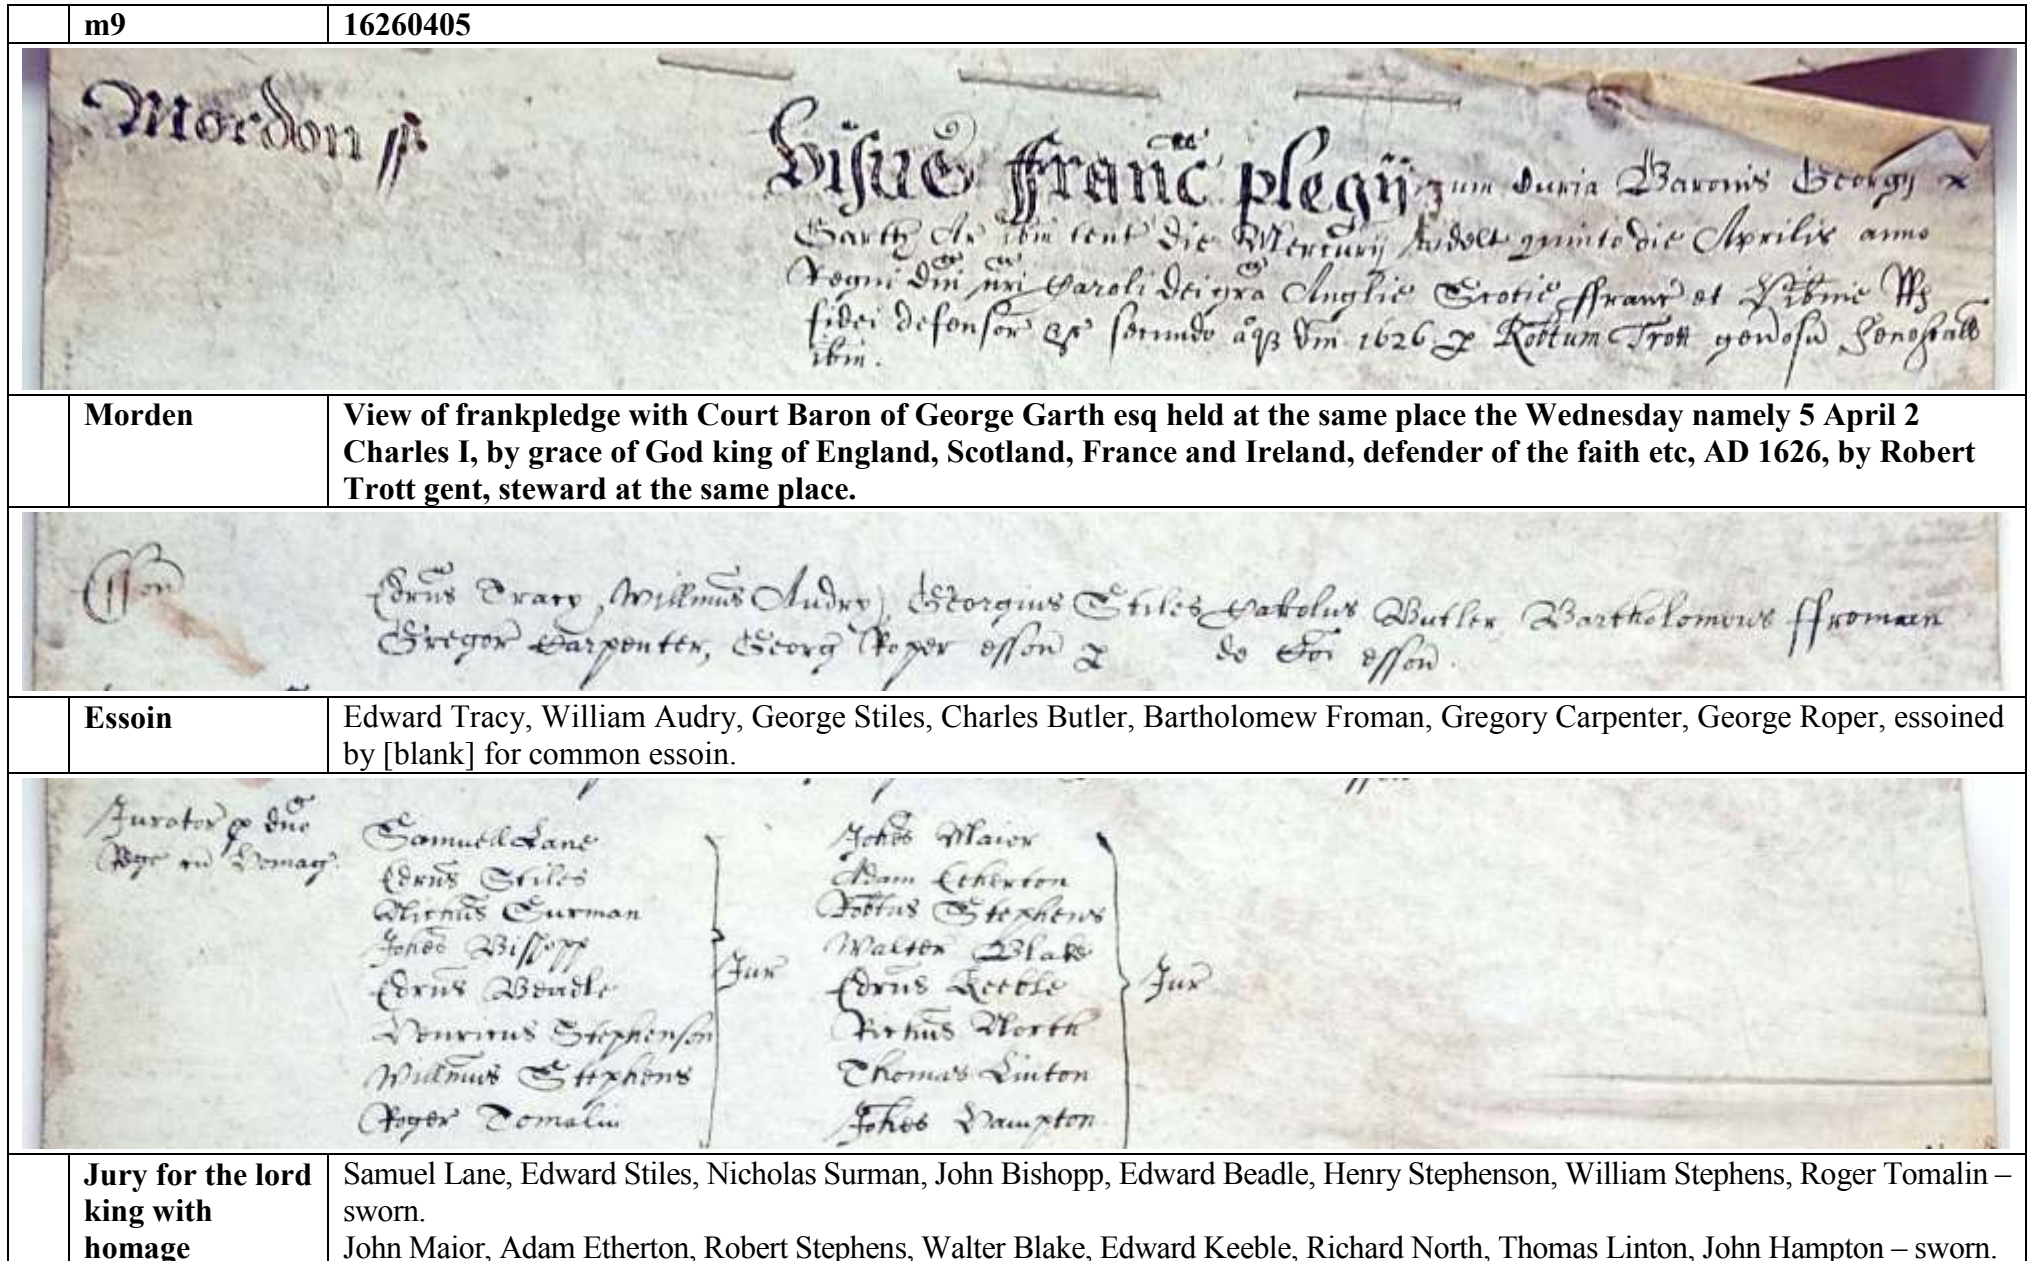 m9 16260405
Mordon ss
Visus Franc plegij cum Curia Baronis Georgij
Garth Ar ibm tent die Mercurij videlt quinto die Aprilis anno
Regni dni nri Caroli dei gra Anglie Scotie ffranc et Hibnie
fidei defensor &c secundo aoqz dni 1626 p Robtum Trott generosu Senescall
ibm.
Morden View of frankpledge with Court Baron of George Garth esq held at the same place the Wednesday namely 5 April 2
Charles I, by grace of God king of England, Scotland, France and Ireland, defender of the faith etc, AD 1626, by Robert
Trott gent, steward at the same place.
Esson Edrus Tracy, Willmus Audry, Georgius Stiles Carolus Butler Bartholomeus ffroman
Gregor Carpenter, Georg Roper esson p de Coi esson.
Essoin Edward Tracy, William Audry, George Stiles, Charles Butler, Bartholomew Froman, Gregory Carpenter, George Roper, essoined
by [blank] for common essoin.
Jurator p dno
Rege cu Homag
Samuell Lane
Edrus Stiles
Nichus Surman
Johes Bisshopp
Edrus Beadle
Henricus Stephenson
Willmus Stephens
Roger Tomalin
Jur
Johes Maior
Adam Etherton
Robtus Stephens
Walter Blake
Edrus Keeble
Richus North
Thomas Linton
Johes Hampton
Jur
Jury for the lord
king with
homage
Samuel Lane, Edward Stiles, Nicholas Surman, John Bishopp, Edward Beadle, Henry Stephenson, William Stephens, Roger Tomalin –
sworn.
John Maior, Adam Etherton, Robert Stephens, Walter Blake, Edward Keeble, Richard North, Thomas Linton, John Hampton – sworn.